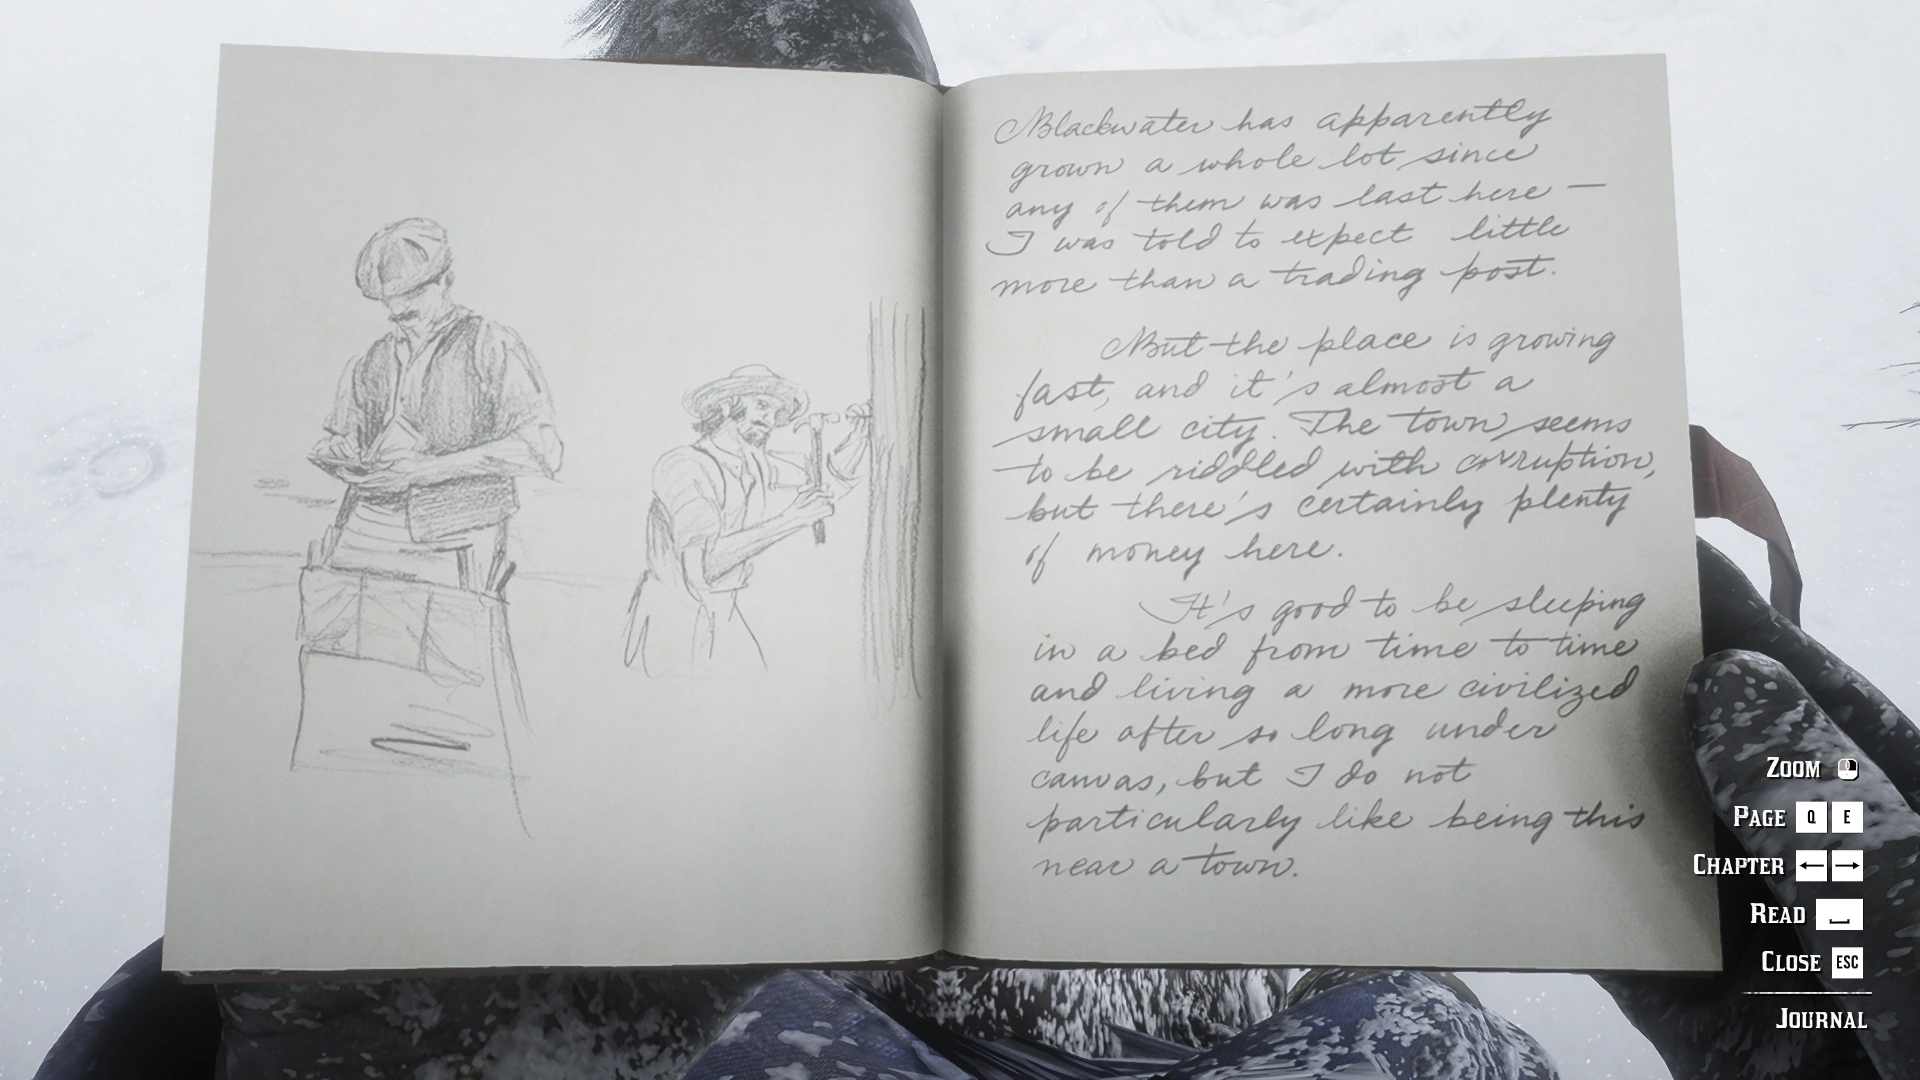 Blackwater has apparently
grown a whole lot since
any of them was last here —
I was told to expect little
more than a trading post.
But the place is growing
fast, and it's almost a
small city. The town seems
to be riddled with corruption,
but there's certainly plenty
of money here.
It's good to be sleeping
in a bed from time to time
and living a more civilized
life after so long under
canvas, but I do not
particularly like being this
near a town.
ZOOM
PAGE Q E
CHAPTER ← →
READ
CLOSE ESC
JOURNAL